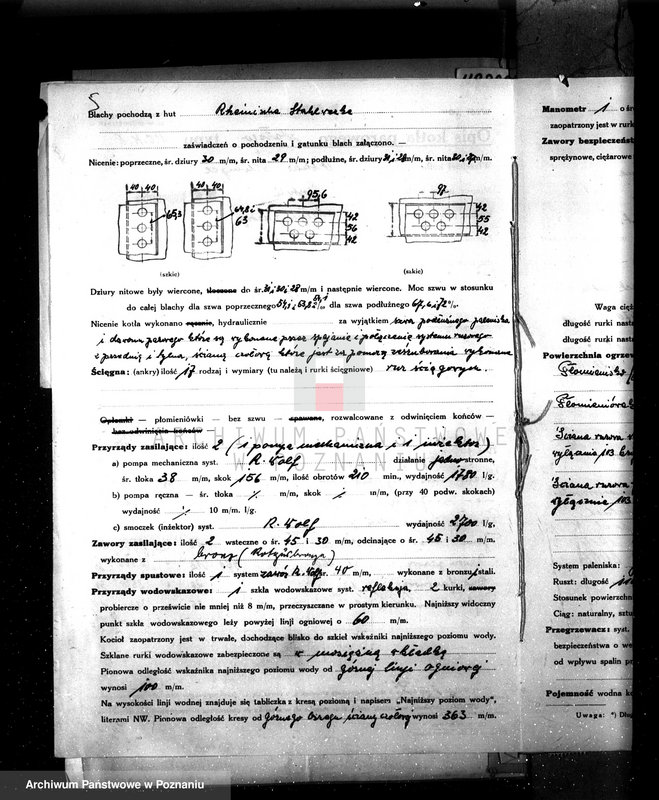 5
Blachy pochodzą z hut Rheinische Stahlwerke
zaświadczeń o pochodzeniu i gatunku blach załączono. —
Nicenie: poprzeczne, śr. dziury 30 m/m, śr. nita 29 m/m; podłużne, śr. dziury m/m, śr. nita m/m.
40 40
40 40
95,6
97
65,3
63
42
56
42
42
55
42
(szkic)
(szkic)
Dziury nitowe były wiercone, tłoczone do śr. m/m i następnie wiercone. Moc szwu w stosunku
do całej blachy dla szwa poprzecznego % dla szwa podłużnego 67,6 i 72 %.
Nicenie kotła wykonano ręcznie, hydraulicznie za wyjątkiem szwa podłużnego
które są wykonane przez spojenie i
z przednią i tylną, ścianą które jest za pomocą wykonane
Ściągna: (ankry) ilość 17 rodzaj i wymiary (tu należą i rurki ściągniowe) rur ściągowych.
Opłomki — płomieniówki — bez szwu — spawane, rozwalcowane z odwinięciem końców —
bez odwinięcia końców
Przyrządy zasilające: ilość 2 (i pompa mechaniczna i i inżektor)
a) pompa mechaniczna syst. R. Wolf działanie jednostronne,
śr. tłoka 38 m/m, skok 156 m/m, ilość obrotów 210 min., wydajność 1780 l/g.
b) pompa ręczna — śr. tłoka m/m, skok m/m, (przy 40 podw. skokach)
wydajność 10 m/m. l/g.
c) smoczek (inżektor) syst. R. Wolf wydajność 2700 l/g.
Zawory zasilające: ilość 2 wsteczne o śr. 45 i 30 m/m, odcinające o śr. 45 i 30 m/m.
wykonane z bronz
Przyrządy spustowe: ilość 1 system zawór R. Wolf śr. 40 m/m, wykonane z bronzu, stali.
Przyrządy wodowskazowe: 1 szkła wodowskazowe syst. refleksja, 2 kurki, zawory
probiercze o prześwicie nie mniej niż 8 m/m, przeczyszczane w prostym kierunku. Najniższy widoczny
punkt szkła wodowskazowego leży powyżej linji ogniowej o 60 m/m.
Kocioł zaopatrzony jest w trwałe, dochodzące blisko do szkieł wskaźniki najniższego poziomu wody.
Szklane rurki wodowskazowe zabezpieczone są w mosiężną
Pionowa odległość wskaźnika najniższego poziomu wody od górnej linji ogniowej
wynosi 100 m/m.
Na wysokości linji wodnej znajduje się tabliczka z kresą poziomą i napisem „Najniższy poziom wody”,
literami NW. Pionowa odległość kresy od górnego brzegu ściany czołowej wynosi 363 m/m.
Manometr 1 o śr
zaopatrzony jest w rurk
Zawory bezpieczeńst
sprężynowe, ciężarowe
Waga cięż
długość rurki nast
długość rurki nast
Powierzchnia ogrzew
Płomienisko
Płomieniówek
Ściana rurowa
wyłącznie
Ściana rurowa
wyłącznie
System paleniska:
Ruszt: długość
Stosunek powierzchn
Ciąg: naturalny, sztu
Przegrzewacz: syst.
bezpieczeństwa o we
od wpływu spalin pr
Pojemność wodna ko
Uwaga: *) Dług
ARCHIWUM PAŃSTWOWE
W POZNANIU
Archiwum Państwowe w Poznaniu